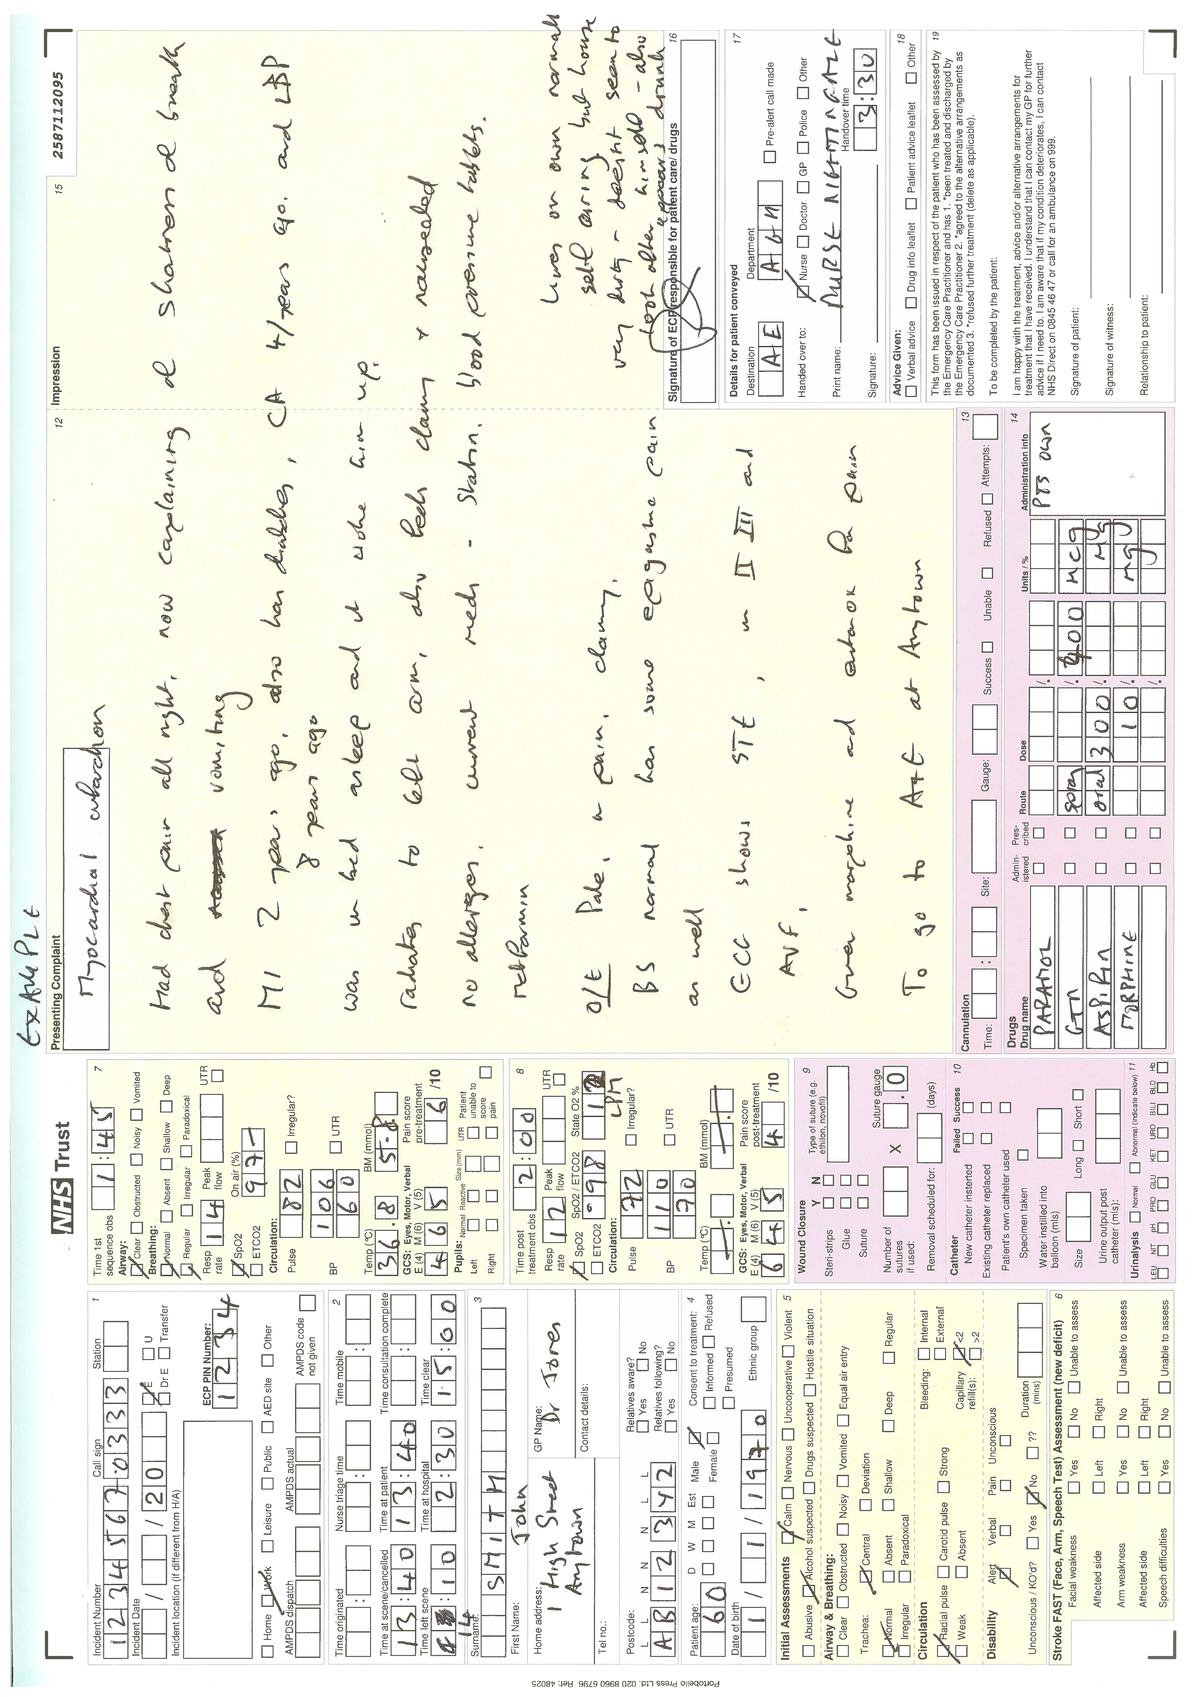 EXAMPLE
NHS Trust
2587112095
1
Incident Number
Call sign
Station
1234567
0333
Incident Date
/ 20
E
U
Dr E
Transfer
Incident location (if different from H/A)
ECP PIN Number:
1234
Home
Work
Leisure
Public
AED site
Other
AMPDS dispatch
AMPDS actual
AMPDS code not given
2
Time originated
Nurse triage time
Time mobile
Time at scene/cancelled
Time at patient
Time consultation complete
13:40
13:40
Time left scene
Time at hospital
Time clear
14
:10
2:30
15:00
3
Surname:
SMITH
First Name:
John
Home address:
1 High Street
Anytown
GP Name:
Dr Jones
Contact details:
Tel no.:
Postcode:
L L N N N L L
AB12 3YZ
Relatives aware?
Yes No
Relatives following?
Yes No
4
Patient age:
D W M Est
Male
Female
60
Consent to treatment:
Informed Refused
Presumed
Date of birth
1/1/1970
Ethnic group
Initial Assessments 5
Calm Nervous Uncooperative Violent
Abusive Alcohol suspected Drugs suspected Hostile situation
Airway & Breathing:
Clear Obstructed Noisy Vomited Equal air entry
Trachea: Central Deviation
Normal Absent Shallow Deep Regular
Irregular Paradoxical
Circulation
Radial pulse Carotid pulse Strong
Weak Absent
Bleeding: Internal
External
Capillary refill(s): <2
>2
Disability
Alert Verbal Pain Unconscious
Unconscious / KO'd? Yes No ??
Duration (mins)
Stroke FAST (Face, Arm, Speech Test) Assessment (new deficit) 6
Facial weakness Yes No Unable to assess
Affected side Left Right
Arm weakness Yes No Unable to assess
Affected side Left Right
Speech difficulties Yes No Unable to assess
7
Time 1st sequence obs
1:45
Airway:
Clear Obstructed Noisy Vomited
Breathing:
Normal Absent Shallow Deep
Regular Irregular Paradoxical
Resp rate 14 Peak flow UTR
SpO2 ETCO2 On air (%) 97
Circulation:
Pulse 82 Irregular?
BP 106 60 UTR
Temp (°C) 36.8 BM (mmol) 5.8
GCS: Eyes, Motor, Verbal
E (4) M (6) V (5)
4 6 5
Pain score pre-treatment 6 /10
Pupils: Normal Reactive Size (mm) UTR
Left
Right
Patient unable to score pain
8
Time post treatment obs
2:00
Resp rate 12 Peak flow UTR
SpO2 ETCO2
SpO2 / ETCO2 98
State O2 %
LPM
Circulation:
Pulse 72 Irregular?
BP 110 70 UTR
Temp (°C) BM (mmol)
GCS: Eyes, Motor, Verbal
E (4) M (6) V (5)
6 4 5
Pain score post-treatment 4 /10
Wound Closure 9
Y N
Steri-strips
Glue
Suture
Type of suture (e.g. ethilon, novofil)
Number of sutures if used: X Suture gauge .0
Removal scheduled for: (days)
Catheter 10
Failed Success
New catheter inserted
Existing catheter replaced
Patient's own catheter used
Specimen taken
Water instilled into balloon (mls)
Size Long Short
Urine output post catheter (mls):
Urinalysis Normal Abnormal (indicate below) 11
LEU NIT pH PRO GLU KET URO BILI BLD Hb
Presenting Complaint 12
Myocardial infarction
Impression 15
Had chest pain all night, now complaining of shortness of breath
and vomiting
MI 2 years ago, also has diabetes, CA 4 years ago. and LBP
8 years ago
was in bed asleep and it woke him up.
radiates to left arm, also feels clammy & nauseated
no allergies, current meds - Statin. blood pressure tablets.
metformin
lives on own normally
self caring but house
very dirty - doesn't seem to
look after himself - also
appears drunk
O/E Pale, in pain, clammy,
BS normal has some epigastric pain
as well
ECG shows STE, in II III and
AVF,
Given morphine and entonox for pain
To go to A+E at Anytown
Cannulation 13
Time: Site: Gauge: Success Unable Refused Attempts:
Drugs 14
Drug name
Administered
Prescribed
Route
Dose
Units / %
Administration info
PARAMOL PTS OWN
GTN spray 400 MCG
ASPIRIN oral 300 Mg
MORPHINE 10 mg
16
Signature of ECP responsible for patient care/ drugs
17
Details for patient conveyed
Destination Department
AE A&M
Pre-alert call made
Handed over to: Nurse Doctor GP Police Other
Print name: NURSE NIGHTINGALE
Signature:
Handover time
3:30
Advice Given: 18
Verbal advice Drug info leaflet Patient advice leaflet Other
19
This form has been issued in respect of the patient who has been assessed by
the Emergency Care Practitioner and has 1. *been treated and discharged by
the Emergency Care Practitioner 2. *agreed to the alternative arrangements as
documented 3. *refused further treatment (delete as applicable).
To be completed by the patient:
I am happy with the treatment, advice and/or alternative arrangements for
treatment that I have received. I understand that I can contact my GP for further
advice if I need to. I am aware that if my condition deteriorates, I can contact
NHS Direct on 0845 46 47 or call for an ambulance on 999.
Signature of patient:
Signature of witness:
Relationship to patient:
Portobello Press Ltd. 020 8960 6796 Ref: 48025